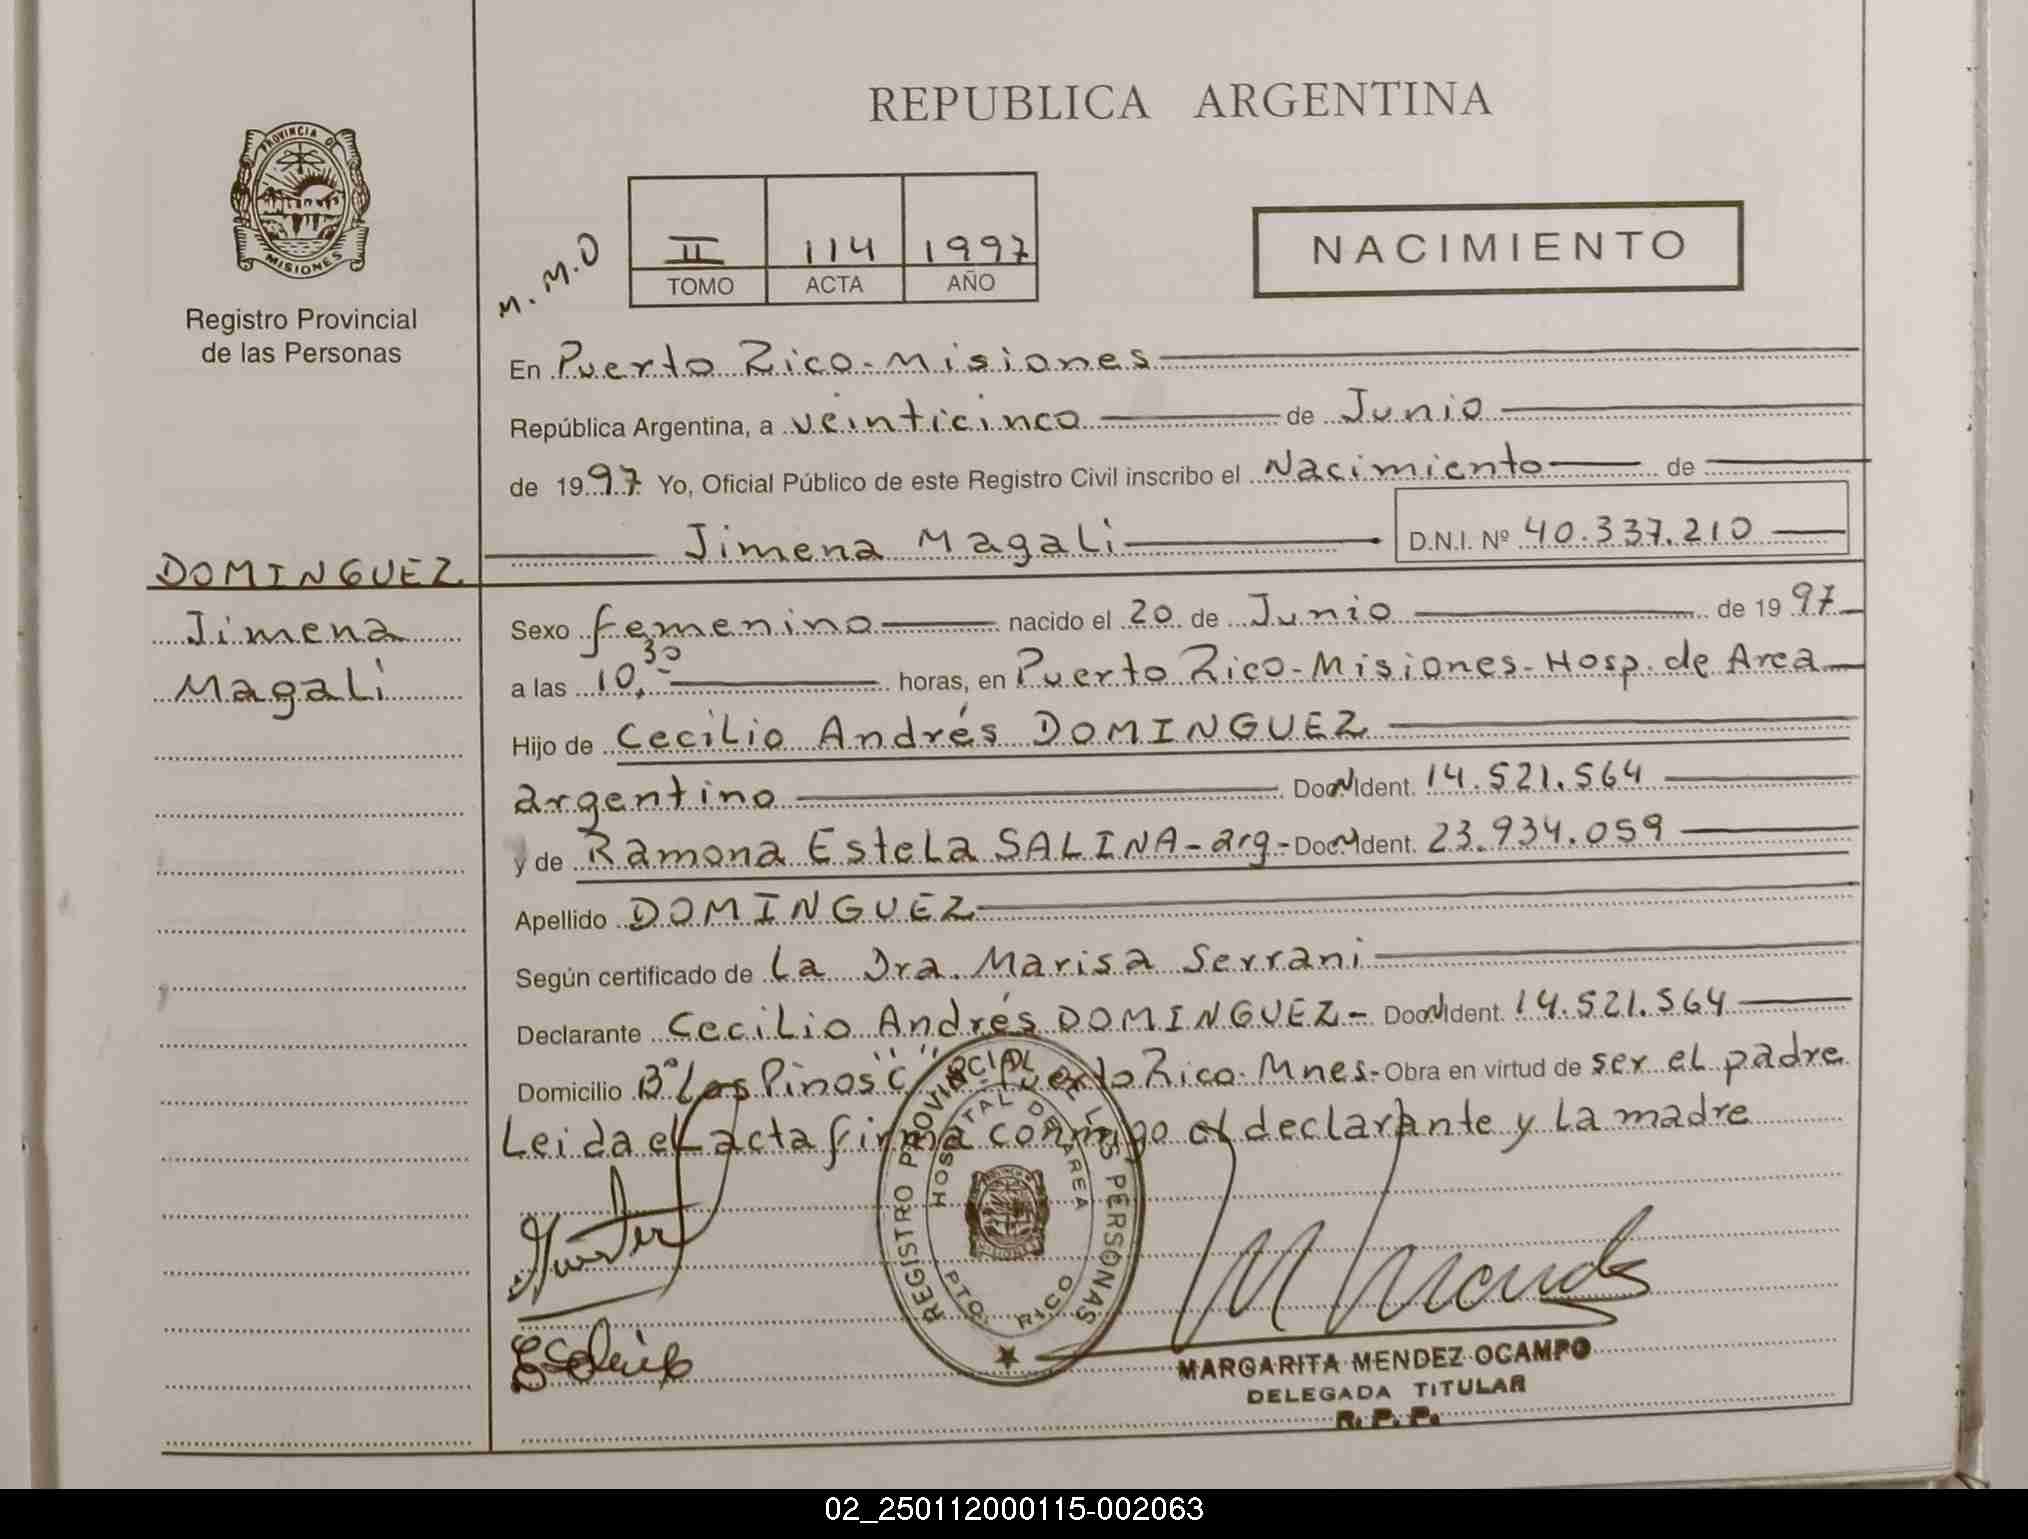 REPUBLICA ARGENTINA
PROVINCIA DE MISIONES
Registro Provincial
de las Personas
M.M.O
II 114 1997
TOMO ACTA AÑO
NACIMIENTO
En Puerto Rico-Misiones
República Argentina, a veinticinco de Junio
de 1997 Yo, Oficial Público de este Registro Civil inscribo el Nacimiento de
Jimena Magali D.N.I. Nº 40.337.210
DOMINGUEZ
Jimena
Magali
Sexo femenino nacido el 20 de Junio de 1997
a las 10,30 horas, en Puerto Rico-Misiones-Hosp. de Area
Hijo de Cecilio Andrés DOMINGUEZ
argentino Doc. Ident. 14.521.564
y de Ramona Estela SALINA-arg-Doc. Ident. 23.934.059
Apellido DOMINGUEZ
Según certificado de La Dra. Marisa Serrani
Declarante Cecilio Andrés DOMINGUEZ- Doc. Ident. 14.521.564
Domicilio Bº Los Pinos "C" - Puerto Rico-Mnes- Obra en virtud de ser el padre
Leida el acta firma conmigo el declarante y La madre
REGISTRO PROVINCIAL DE LAS PERSONAS
HOSPITAL DE AREA
PTO. RICO
MARGARITA MENDEZ OCAMPO
DELEGADA TITULAR
R. P. P.
02_250112000115-002063